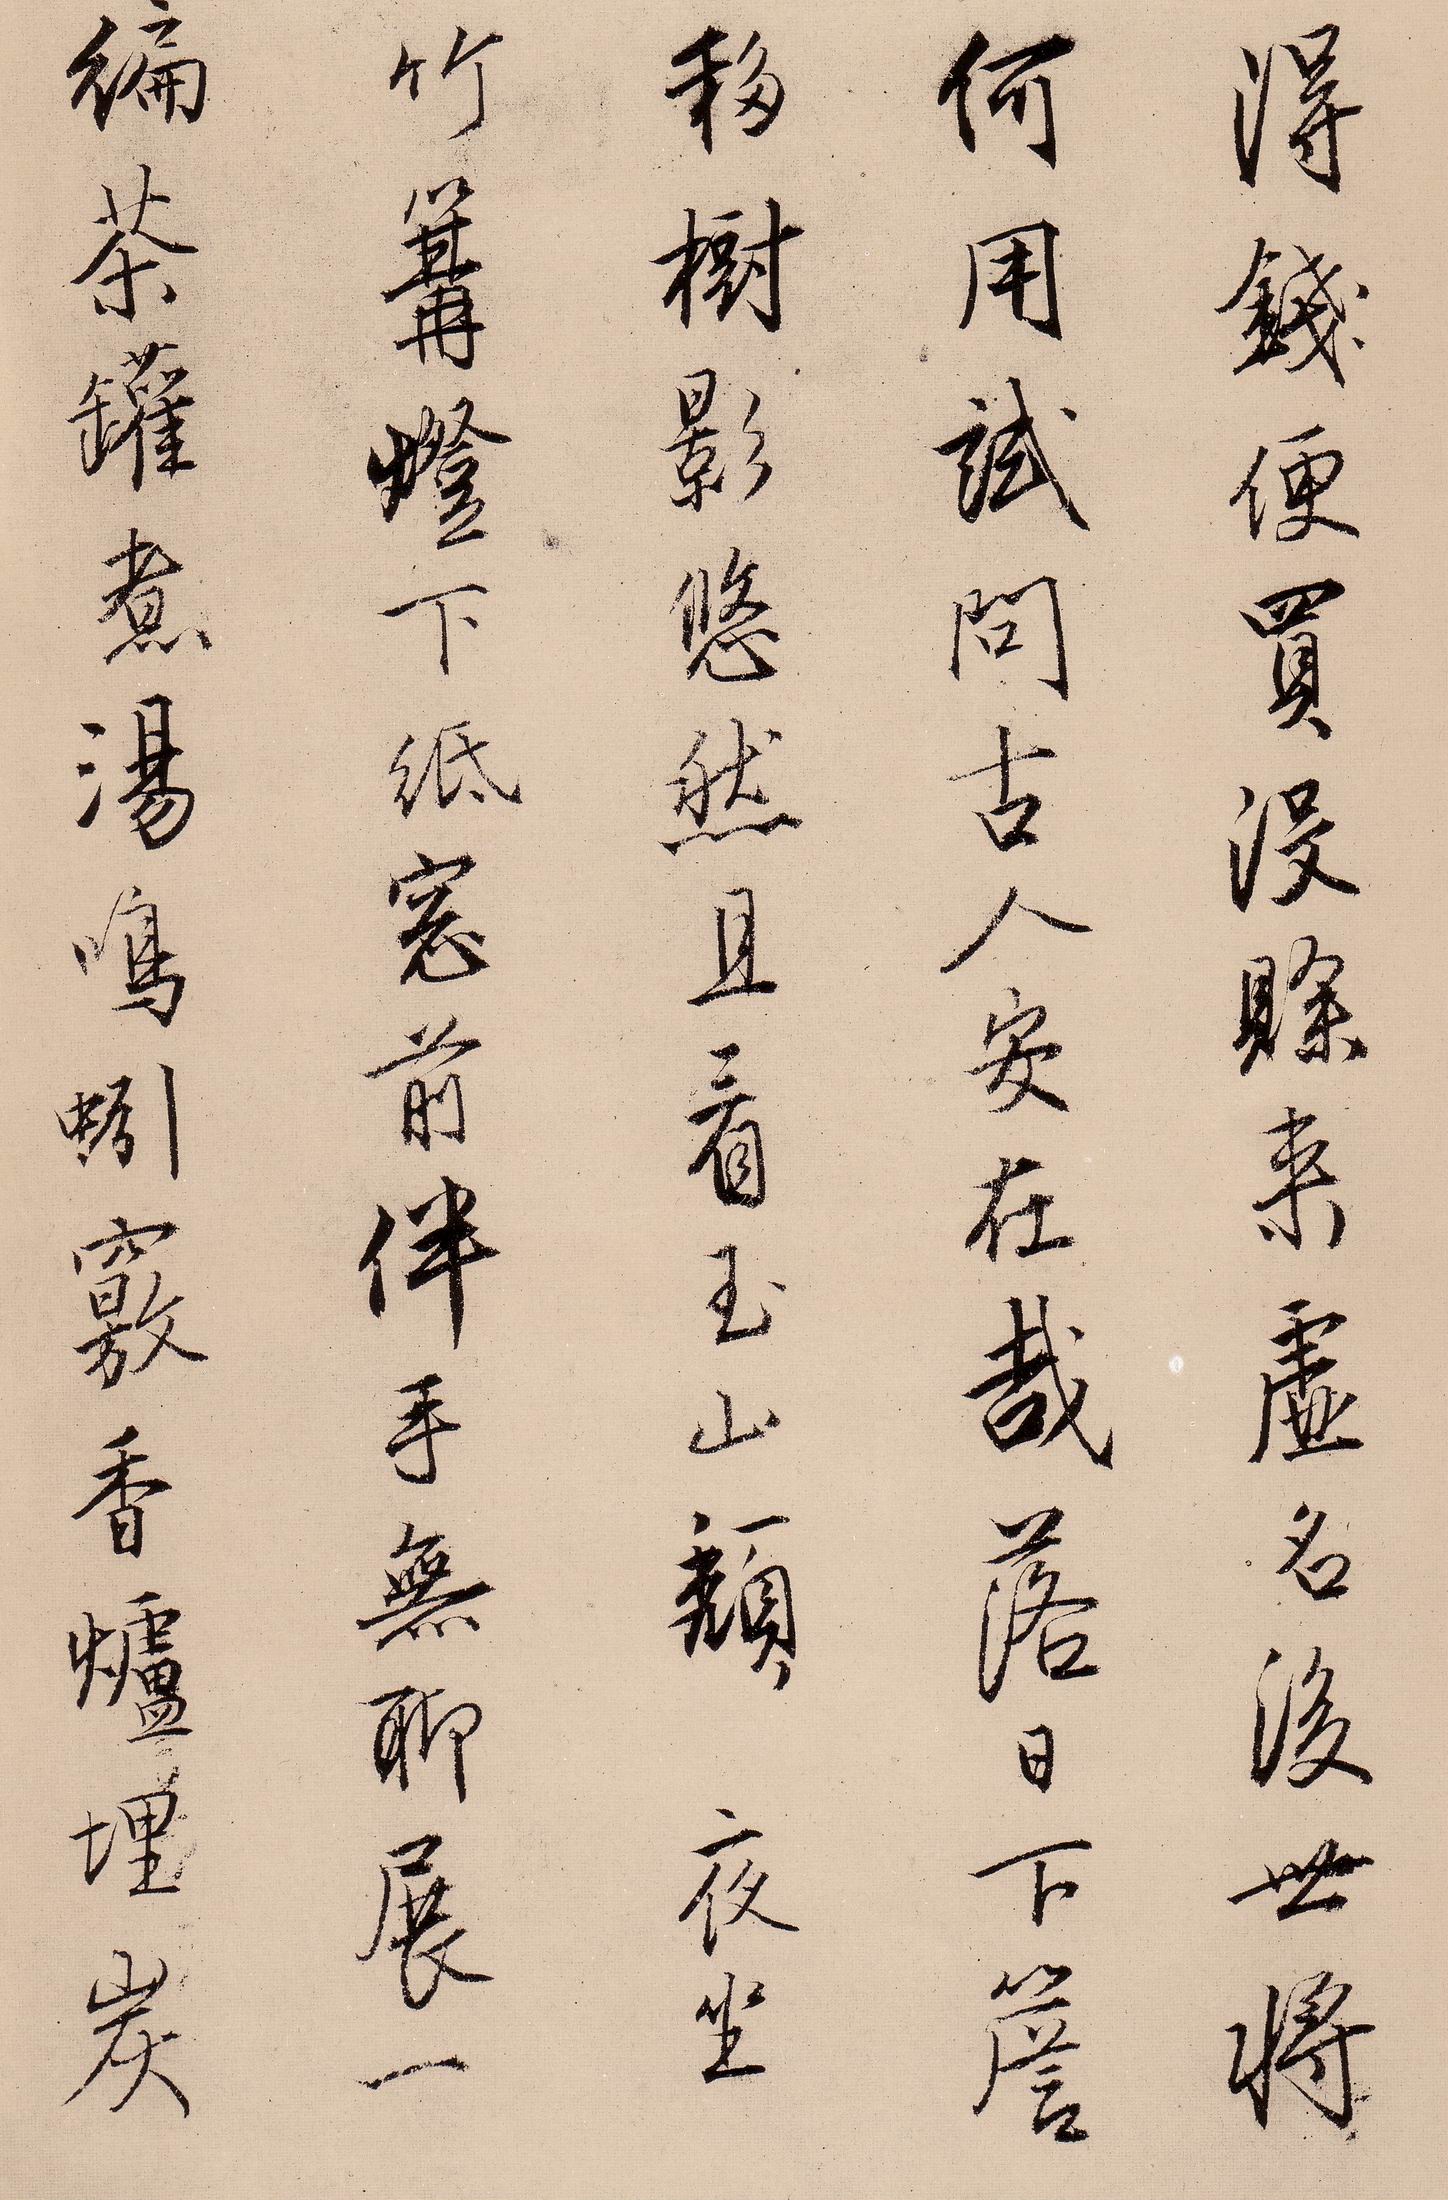 得錢便買沒賖来虛名後世將
何用試問古人安在哉落日下簷
移樹影悠然且看玉山頹 夜坐
竹篝燈下紙窓前伴手無聊展一
編茶罐煮湯鳴蚓竅香爐埋炭